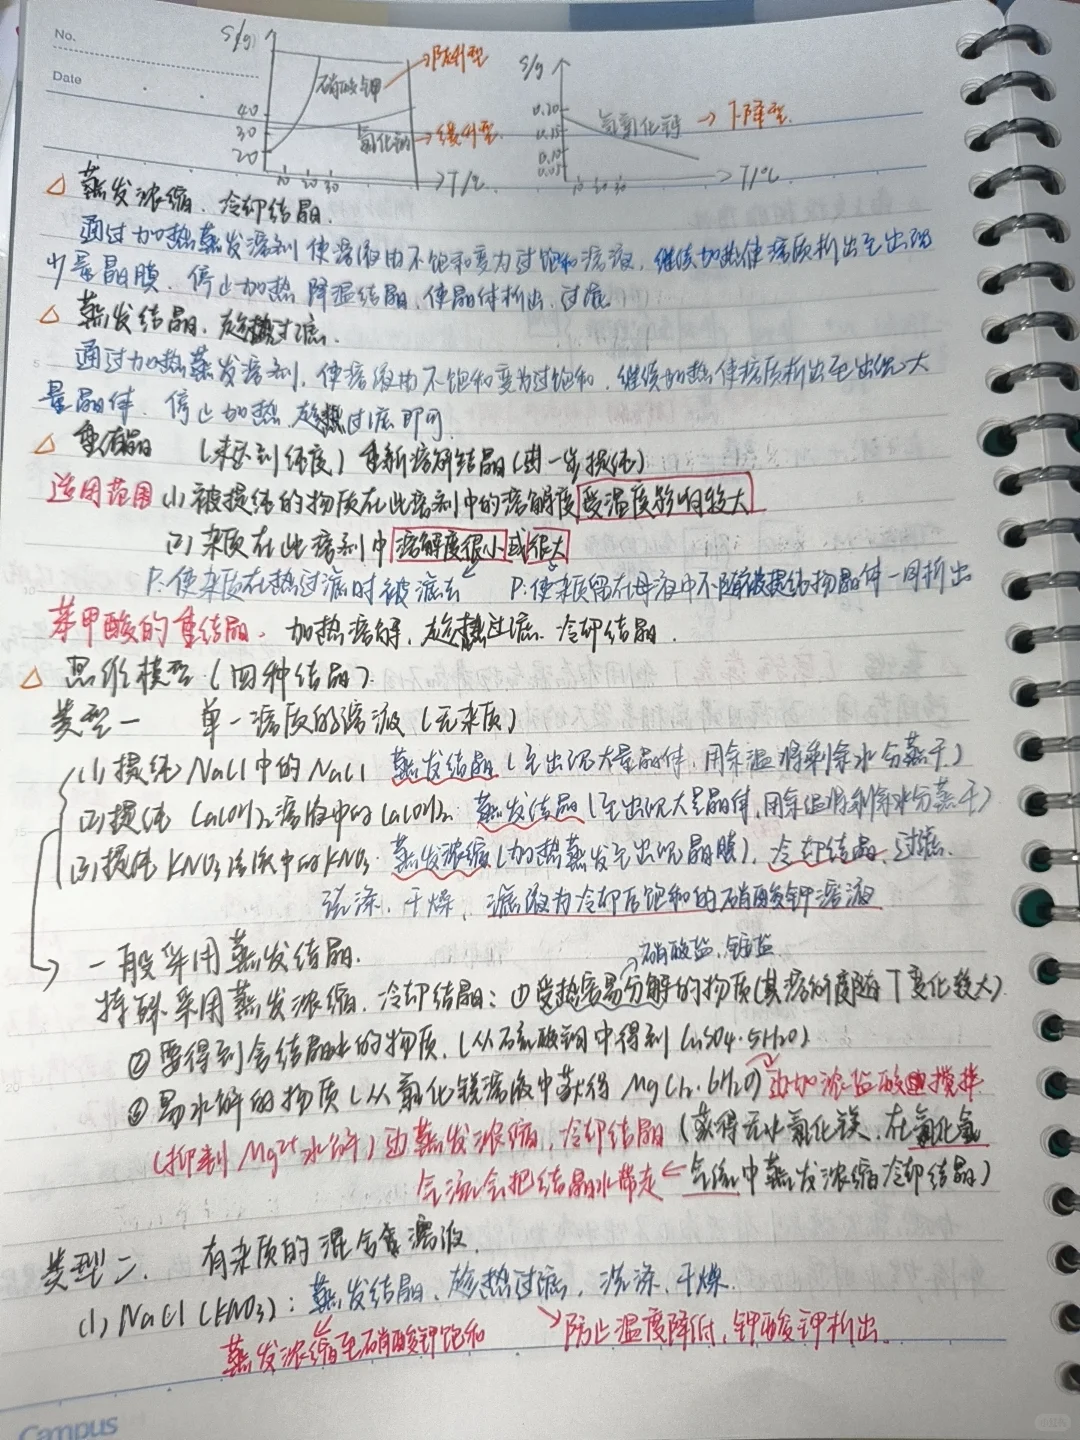 No.
Date
S/g
40
30
20
10 20 30
T/℃
硝酸钾
→陡升型
氯化钠
→缓升型
S/g
0.20
0.15
0.10
0.05
10 20 30
T/℃
氢氧化钙
→下降型
△ 蒸发浓缩、冷却结晶.
通过加热蒸发溶剂使溶液由不饱和变为过饱和溶液,继续加热使溶质析出至出现
少量晶膜、停止加热 降温结晶,使晶体析出,过滤
△ 蒸发结晶、趁热过滤.
通过加热蒸发溶剂,使溶液由不饱和变为过饱和,继续加热使溶质析出至出现大
量晶体、停止加热 趁热过滤即可
△ 重结晶 (未达到纯度) 重新溶解结晶(进一步提纯)
适用范围 (1) 被提纯的物质在此溶剂中的溶解度受温度影响较大
(2) 杂质在此溶剂中溶解度很小或很大
P:使杂质在热过滤时被滤去 P:使杂质留在母液中不随被提纯物晶体一同析出
苯甲酸的重结晶. 加热溶解、趁热过滤、冷却结晶.
△ 思维模型(四种结晶).
类型一 单一溶质的溶液(无杂质)
(1) 提纯NaCl中的NaCl 蒸发结晶(至出现大量晶体,用余温将剩余水分蒸干)
(2) 提纯Ca(OH)₂溶液中的Ca(OH)₂. 蒸发结晶(至出现大量晶体,用余温将剩余水分蒸干)
(3) 提纯KNO₃溶液中的KNO₃. 蒸发浓缩(加热蒸发至出现晶膜)、冷却结晶、过滤.
洗涤、干燥、滤液为冷却后饱和的硝酸钾溶液
→ 一般采用蒸发结晶.
硝酸盐、铵盐
特殊采用蒸发浓缩、冷却结晶:①受热容易分解的物质(其溶解度随T变化较大)
② 要得到含结晶水的物质.(从硫酸铜中得到CuSO4·5H2O)
③ 易水解的物质(从氯化镁溶液中获得MgCl₂·6H2O) 边加浓盐酸边搅拌
(抑制Mg²⁺水解)边蒸发浓缩,冷却结晶(获得无水氯化镁、在氯化氢
气流会把结晶水带走← 气流中蒸发浓缩冷却结晶)
类型二. 有杂质的混合溶液.
(1) NaCl(KNO₃): 蒸发结晶、趁热过滤、洗涤、干燥.
蒸发浓缩至硝酸钾饱和 ↘防止温度降低,钾酸钾析出.
Campus
小红书